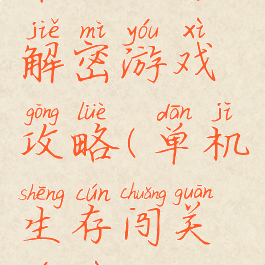 jiě mì yóu xì
解密游戏
gōng lüè dān jī
攻略(单机
shēng cún chuǎng guān
生存闯关